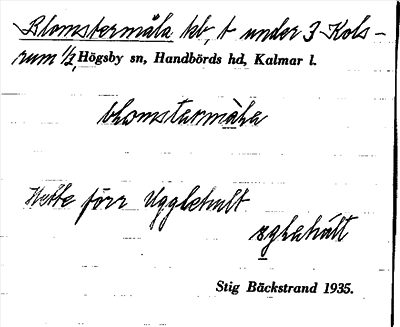 Blomstermåla kb, t under 3 Kols-
rum 1/2, Högsby sn, Handbörds hd, Kalmar l.
blomstarmàla
Hette förr Ugglehult
ɡlehúlt
Stig Bäckstrand 1935.